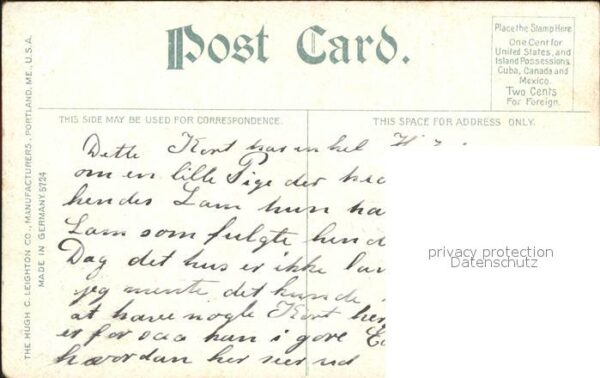 Post Card.
Place the Stamp Here
One Cent for
United States, and
Island Possessions
Cuba, Canada and
Mexico.
Two Cents
For Foreign.
THIS SIDE MAY BE USED FOR CORRESPONDENCE.
THIS SPACE FOR ADDRESS ONLY.
THE HUGH C. LEIGHTON CO., MANUFACTURERS, PORTLAND, ME., U.S.A.
MADE IN GERMANY 5724
Dette Kort har en hel
om en lille Pige der
hendes Lam hun
Lam som fulgte
Dag det hus er ikke
jeg mente det kunde
at have nogle Kort
er for saa kan i gøre
hvordan her ser ud
privacy protection
Datenschutz